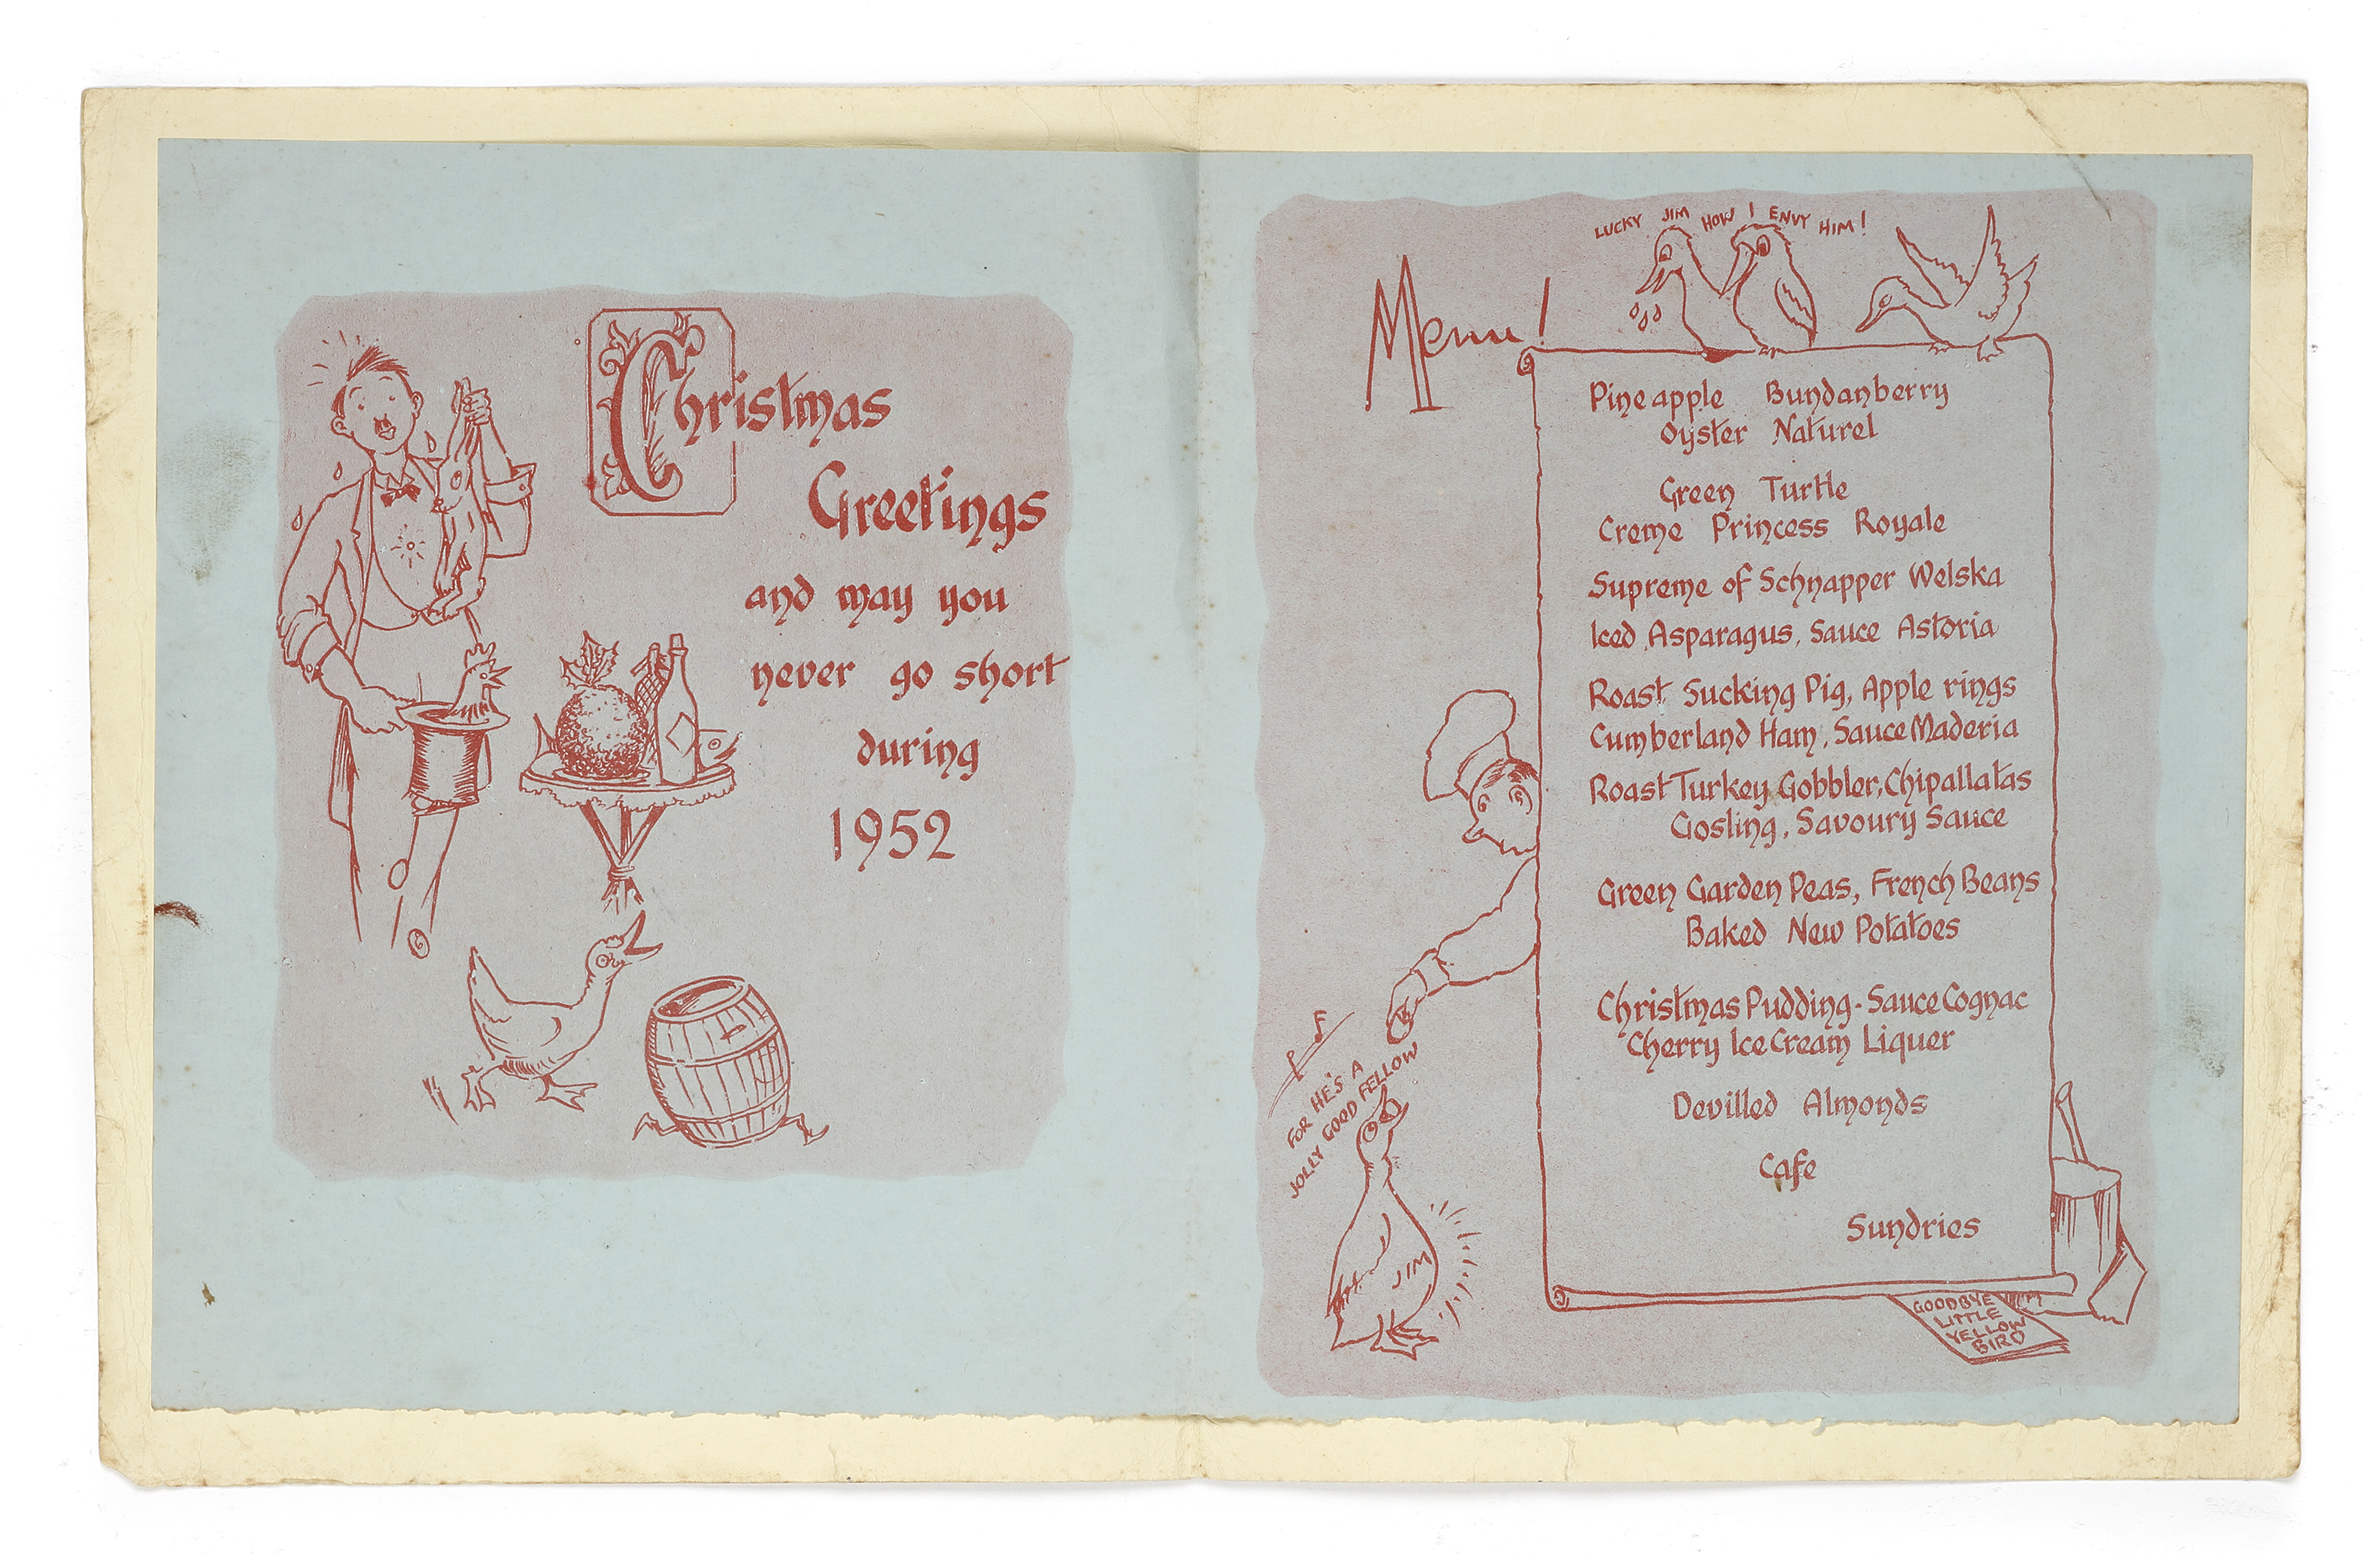 Christmas
Greetings
and may you
never go short
during
1952
LUCKY JIM HOW I ENVY HIM!
Menu!
Pineapple Bundanberry
Oyster Naturel
Green Turtle
Creme Princess Royale
Supreme of Schnapper Welska
Iced Asparagus, Sauce Astoria
Roast Sucking Pig, Apple rings
Cumberland Ham, Sauce Maderia
Roast Turkey Gobbler, Chipallatas
Gosling, Savoury Sauce
Green Garden Peas, French Beans
Baked New Potatoes
Christmas Pudding - Sauce Cognac
Cherry Ice Cream Liquer
Devilled Almonds
Cafe
Sundries
FOR HE'S A
JOLLY GOOD FELLOW
JIM
GOODBYE
LITTLE
YELLOW
BIRD